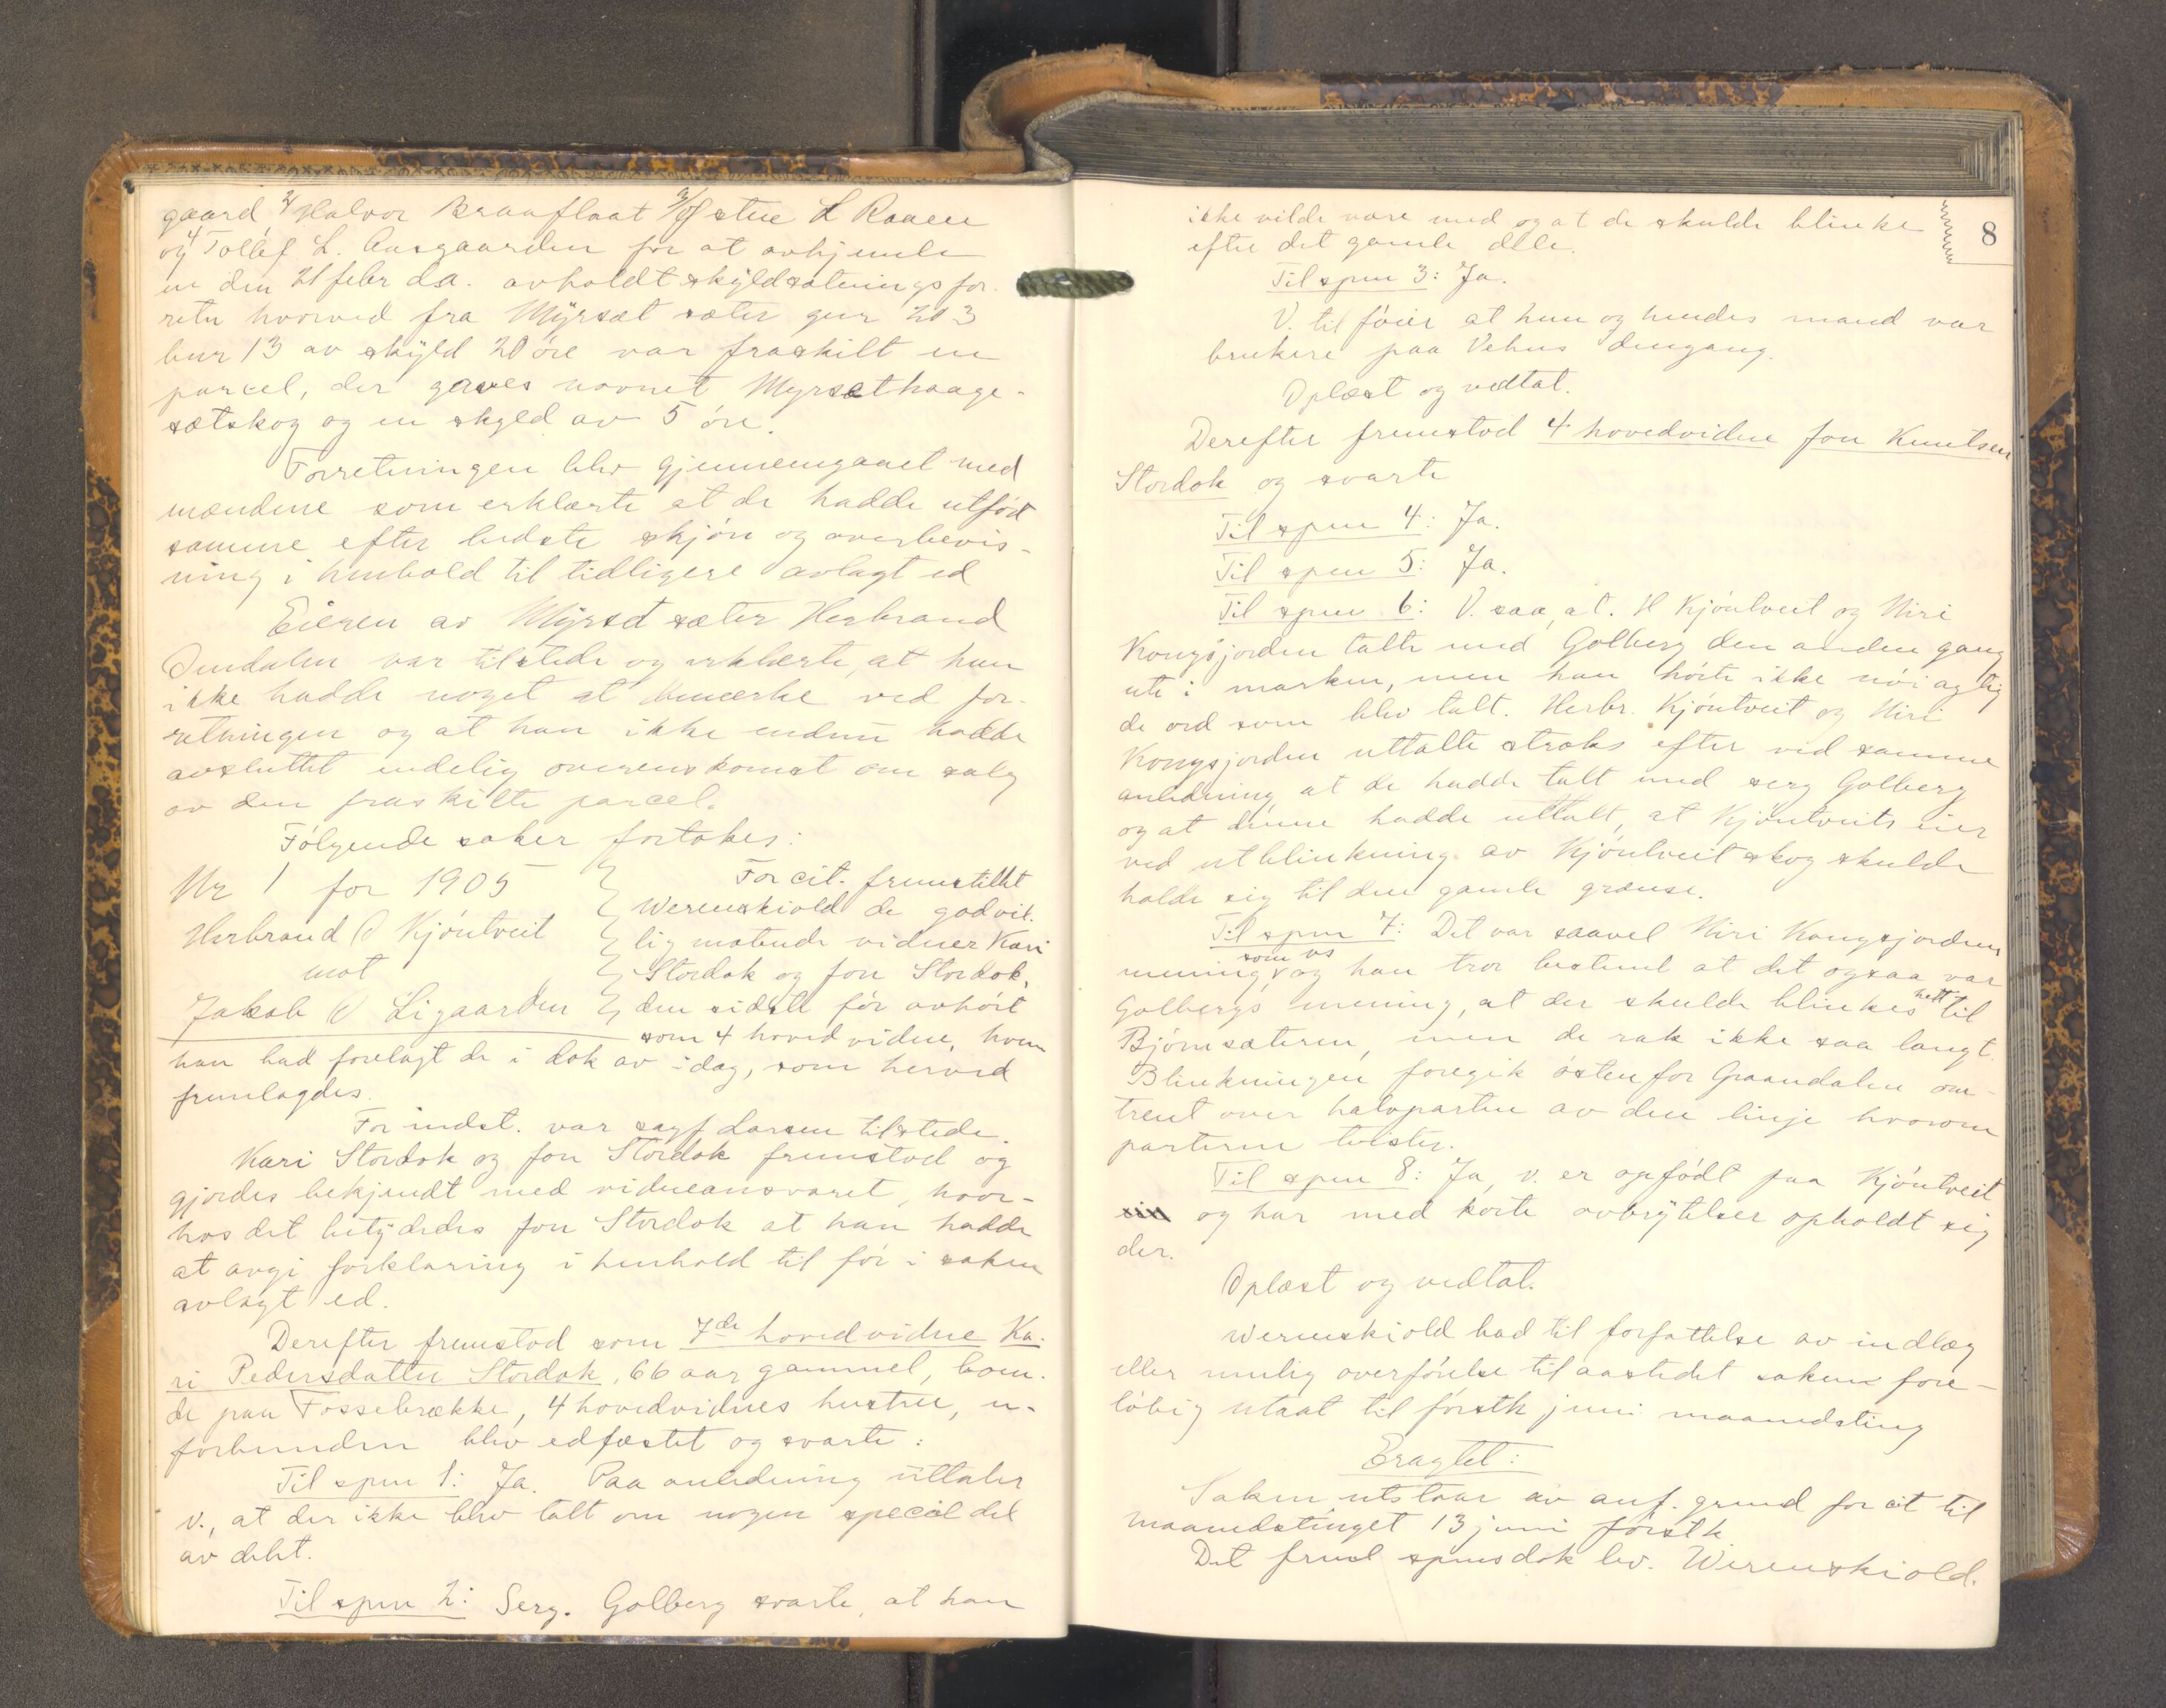 gaard 2/ Halvor Braaflaat 3/ L Raaen
og 4/ Tollef L. Aasgaarden for at avhjemle
en den 21 febr d.a. avholdt skyldsætningsfor-
retn hvorved fra Myrsæt sæter gnr 203
bnr 13 av skyld 20 øre var fraskilt en
parcel, der gaves navnet Myrsæthaage-
sætskog og en skyld av 5 øre.
Forretningen blev gjennemgaaet med
mændene som erklærte at de hadde utført
samme efter bedste skjøn og overbevis-
ning i henhold til tidligere avlagt ed
Eieren av Myrsæt sæter Herbrand
Dindalen var tilstede og erklærte, at han
ikke hadde noget at bemerke ved for-
retningen og at han ikke endnu hadde
avsluttet endelig overenskomst om salg
av den fraskilte parcel.
Følgende saker fortokes:
Nr 1 for 1905
Herbrand O Kjøntveit
mot
Jakob O Ligaarden
For cit. fremstillet
Werenskiold de godvil-
lig møtende vidner Kari
Stordok og Jon Stordok,
den sidste før avhørt
som 4 hovedvidne, hvem
han bad forelagt de i dok av idag, som herved
fremlagdes.
For indst. var sagf Larsen tilstede.
Kari Stordok og Jon Stordok fremstod og
gjordes bekjendt med vidneansvaret, hvor-
hos det betydedes Jon Stordok at han hadde
at avgi forklaring i henhold til før i saken
avlagt ed.
Derefter fremstod som 7de hovedvidne Ka-
ri Pedersdatter Stordok, 66 aar gammel, boen-
de paa Fossebrække, 4 hovedvidnes hustru, u-
forbunden blev edfæstet og svarte:
Til spm 1: Ja. Paa anledning uttaler
v., at der ikke blev talt om nogen speciel del
av delet.
Til spm 2: Serg. Golberg svarte, at han
8
ikke vilde være med og at de skulde blinke
efter det gamle dele.
Til spm 3: Ja.
V. tilføier at hun og hendes mand var
brukere paa Vehus dengang.
Oplæst og vedtat.
Derefter fremstod 4 hovedvidne Jon Knutsen
Stordok og svarte
Til spm 4: Ja.
Til spm 5: Ja.
Til spm 6: V. saa, at. H Kjøntveit og Niri
Kongsjorden talte med Golberg den anden gang
ute i marken, men han hørte ikke nøiagtig
de ord som blev talt. Herbr. Kjøntveit og Niri
Kongsjorden uttalte straks efter ved samme
anledning at de hadde talt med serg Golberg
og at denne hadde uttalt, at Kjøntveits eier
ved utblinkning av Kjøntveit skog skulde
holde sig til den gamle grænse.
Til spm 7: Det var saavel Niri Kongsjordens
mening, som vs og han tror bestemt at det ogsaa var
Golbergs mening, at der skulde blinkes helt til
Bjørnsæteren, men de rak ikke saa langt.
Blinkningen foregik østenfor Graandalen om-
trent over halvparten av den linje hvorom
parterne tvister.
Til spm 8: Ja, v. er opfødt paa Kjøntveit
sin og har med korte avbrytelser opholdt sig
der.
Oplæst og vedtat.
Werenskiold bad til forfattelse av indlæg
eller mulig overførelse til aastedet saken fore-
løbig utsat til førstk juni maanedsting
Eragtet:
Saken utstaar av anf. grund for cit til
maanedstinget 13 juni førstk
Det freml spmsdok lev. Werenskiold.